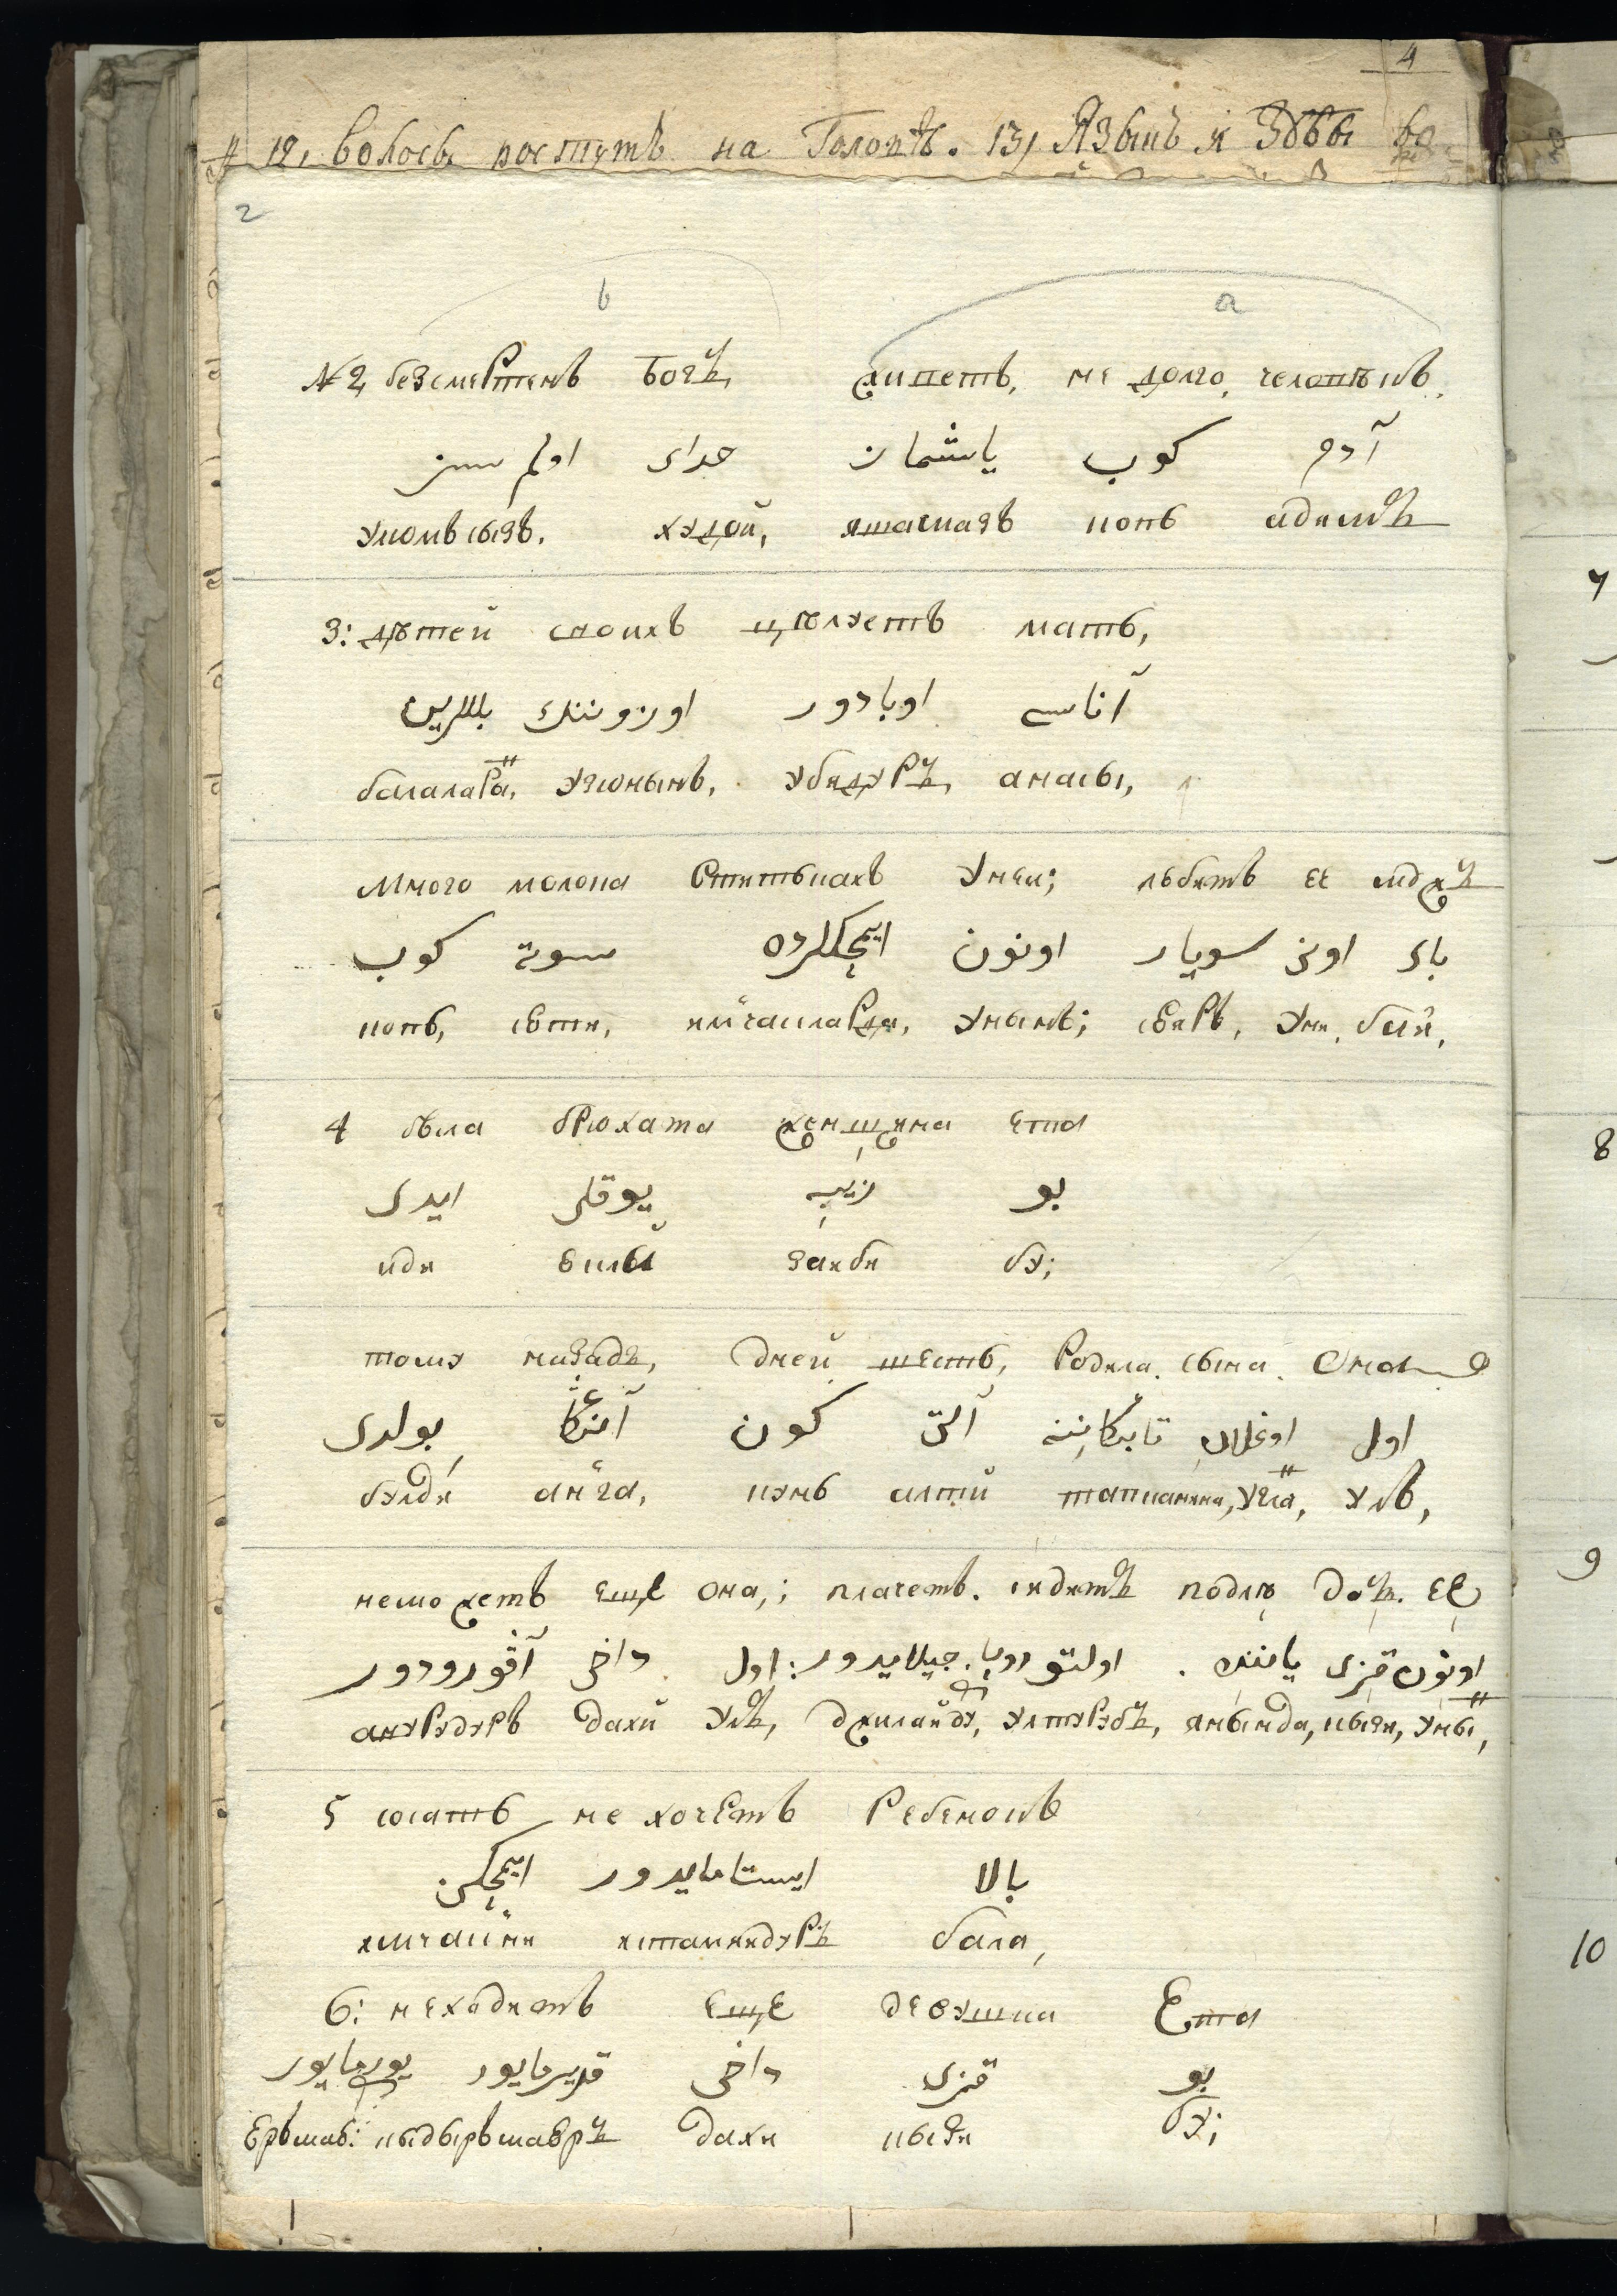 4
# 12, волосы ростутъ на Головѣ. 13, Языкъ и Зубы во
2
b a
№ 2, безсмертенъ Богъ, живетъ, не долго, человѣкъ,
آدم كوب ياشماز حداى اولم سىز
улюмъ сызъ. худой, яшасмазъ копь адямъ
3: дѣтей своихъ цѣлуетъ мать,
آناسى اوبادور اوزوننك بللارىن
балалары, узюнынъ, убядуръ, анасы,
Много молока втитькахъ унеи; любятъ ее мужъ
باى اونى سويار اونون ايمجكلرده سوته كوب
копь, сютя, имчакларда, унынъ; сюяръ, уни, бай,
4 была брюхата женщина ета
بو زيبه يوقلى ايدى
иди юклы заиби бу;
тому назадъ, дней шесть, родила. сына. Она
اول اوغلان تابكاننه آلتى كون آنكا بولدى
булды анга, кунь алтый тапканина, угла, улъ,
неможетъ еще она,; плачетъ. сидитъ подлѣ дочь. ее
اونون قزى ياننده . اولتوروبا. جيلايدور: اول داخى آقورودور
акурудуръ дахи улъ, джилайду, ултурубъ, янында, кызи, уны,
5 сосать не хочетъ Ребенокъ
بالا ايستامايدور ايمجكى
имчакни истамяйдуръ бала,
6: неходитъ еще девушка Ета
بو قزى داخى قديرمايور يورمايور
юрьмаю: кыдырьмаюръ дахи кызи бу;
7
8
9
10